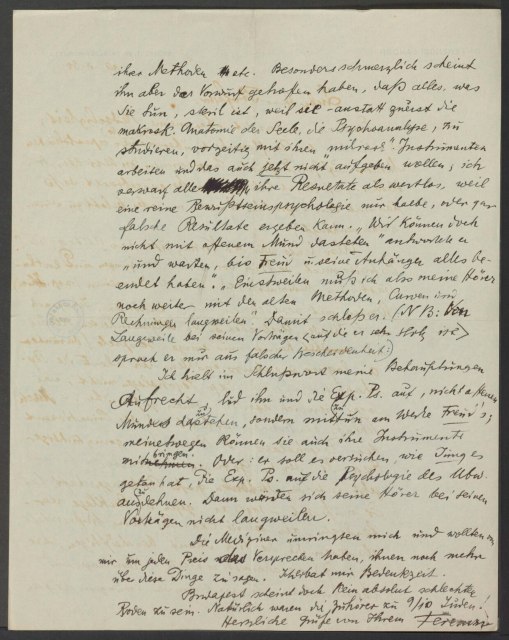 ihrer Methoden etc. Besonders schmerzlich scheint
ihn aber der Vorwurf getroffen haben, daß alles, was
Sie tun, steril ist, weil sie – anstatt zuerst die
makrosk. Anatomie der Seele, die Psychoanalyse, zu
studieren, vorzeitig mit ihren mikrosk. Instrumenten
arbeiten und das auch jetzt nicht aufgeben wollen; ich
verwarf alle ihre Resultate als wertlos, weil
eine reine Bewußtseinspsychologie nur halbe, oder gar
falsche Resultate ergeben kann. „Wir können doch
nicht mit offenem Mund dastehen" antwortete er
„und warten, bis Freud u seine Anhänger alles be-
endet haben." „Einstweilen muß ich also meine Hörer
noch weiter mit den alten Methoden, Curven und
Rechnungen langweilen". Damit schloß er. (NB: Von
Langweile bei seinen Vorträgen (auf die er sehr stolz ist)
sprach er nur aus falscher Bescheidenheit.)
Ich hielt im Schlußwort meine Behauptungen
Aufrecht, lud ihn und die Exp. Ps. auf, nicht offenen
Mundes dazustehen, sondern mitzutun am Werke Freud's;
meinetwegen können sie auch ihre Instrumente
mitbringen. Oder: er soll es versuchen, wie Jung es
getan hat, die Exp. Ps. auf die Psychologie des Ubw.
auszudehnen. Dann würden sich seine Hörer bei seinen
Vorträgen nicht langweilen.
Die Mediziner umringten mich und wollten von
mir um jeden Preis das Versprechen haben, ihnen noch mehr
über diese Dinge zu sagen. Ich erbat mir Bedenkzeit.
Budapest scheint doch kein absolut schlechter
Boden zu sein. Natürlich waren die Zuhörer zu 9/10 Juden!
Herzliche Grüße von Ihrem Ferenczi